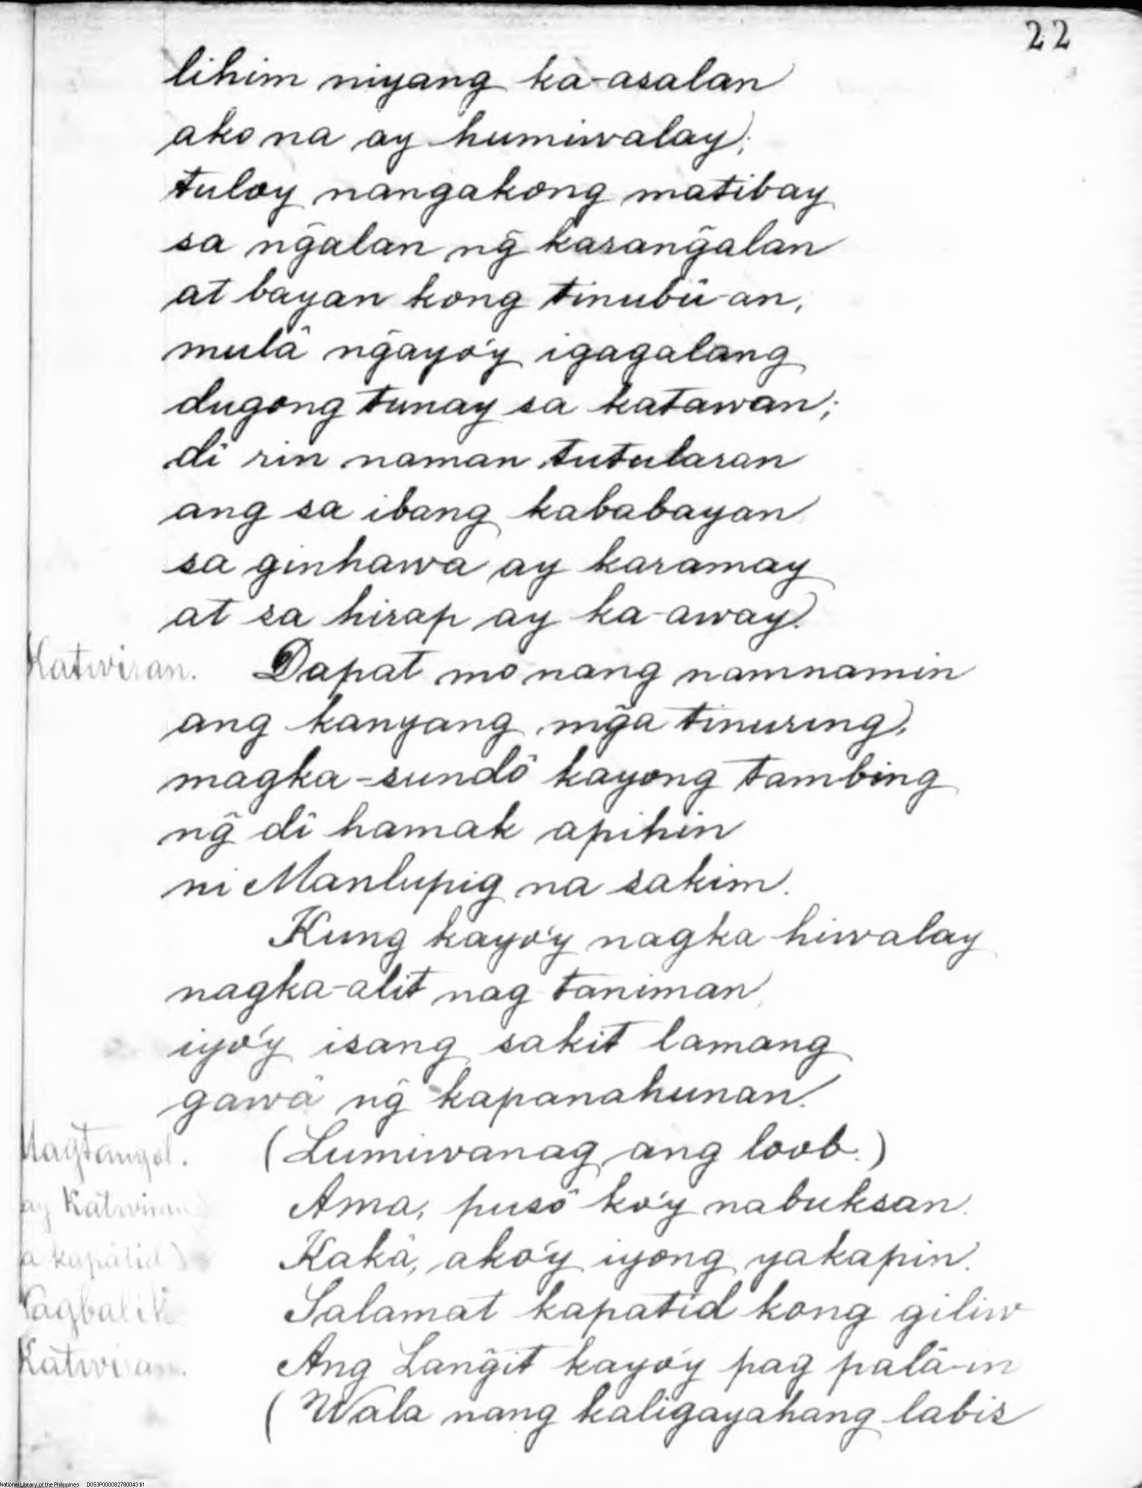 22
lihim niyang ka-asalan
ako na ay humiwalay;
tuloy nangakong matibay
sa ng̃alan ng̃ karang̃alan
at bayan kong tinubũ-an,
mulâ ng̃ayo'y igagalang
dugong tunay sa katawan;
dî rin naman tutularan
ang sa ibang kababayan
sa ginhawa ay karamay
at sa hirap ay ka-away.
Katwiran. Dapat mo nang namnamin
ang kanyang mg̃a tinuring,
magka-sundô kayong tambing
ng̃ dî hamak apihin
ni Manlupig na sakim.
Kung kayo'y nagka-hiwalay
nagka-alit nag-taniman
iyo'y isang sakit lamang
gawâ ng̃ kapanahunan.
Magtangol. (Lumiwanag ang loob.)
ay Katwiran) Ama, pusô ko'y nabuksan.
a kapatid) Kakâ, ako'y iyong yakapin.
Pagbalik Salamat kapatid kong giliw
Katwiran. Ang Lang̃it kayo'y pag palâ-in
(Wala nang kaligayahang labis
National Library of the Philippines